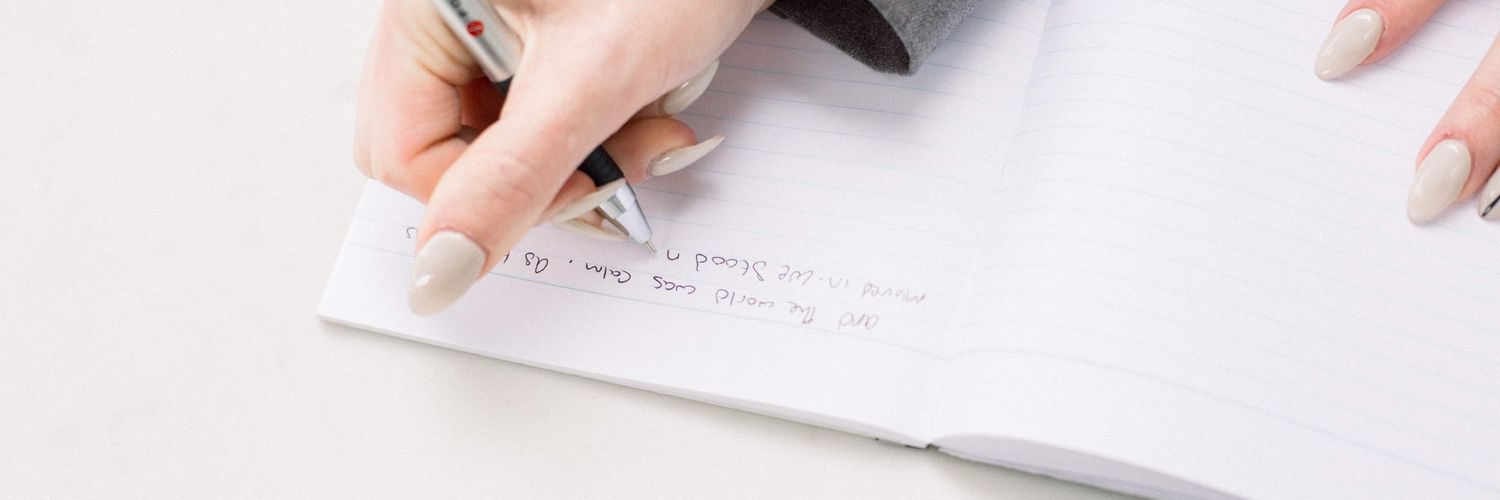 and the world was calm. As
moved in. We stood n